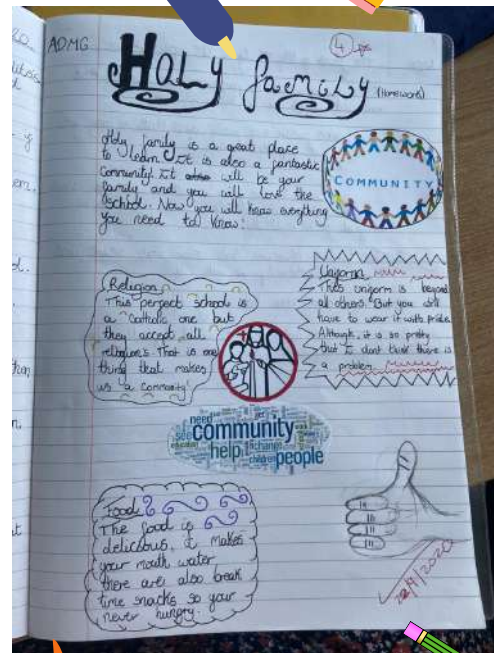 ADMG
4
HOLY FAMILY (Homework)
Holy family is a great place
to learn. It is also a fantastic
Community! It will be your
family and you will love the
school. Now you will know everything
you need to know!
COMMUNITY
Religion
This perfect school is
a Catholic one but
they accept all
religions. That is one
thing that makes
us a Community!
Uniform
This uniform is beyond
all others. But you still
have to wear it with pride.
Although, it is so pretty
that I dont think there is
a problem.
need
see community
help change
children people
Food
The food is
delicious, it makes
your mouth water
there are also break
time snacks so your
never hungry.
22/4/2020